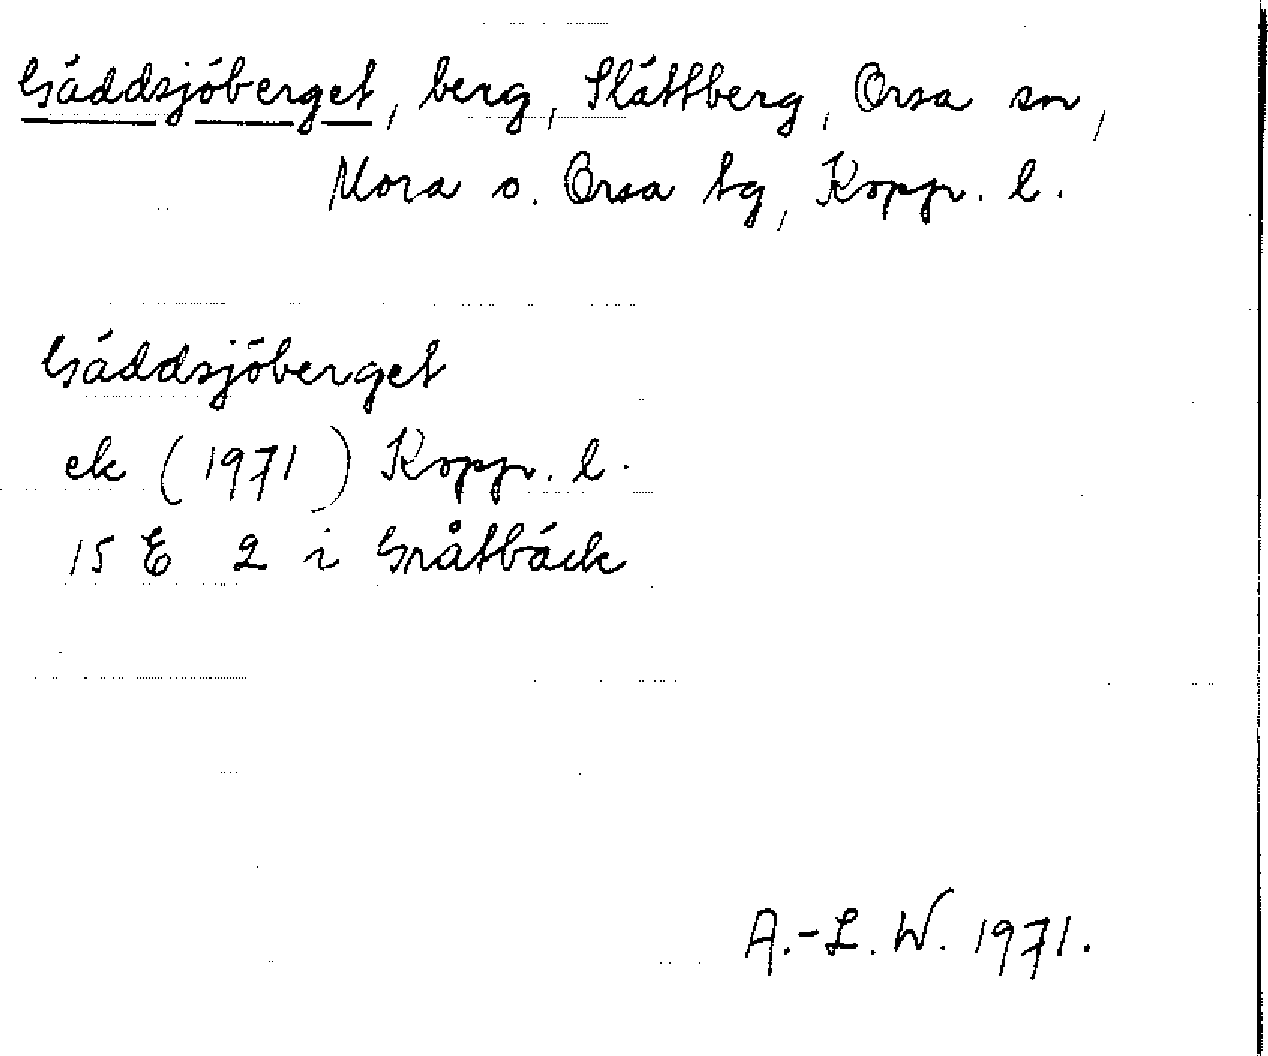 Gäddsjöberget, berg, Slättberg, Orsa sn,
Mora o. Orsa tg, Kopp. l.
Gäddsjöberget
ek (1971) Kopp. l.
15 E 2 i Gråtbäck
A.-L. W. 1971.